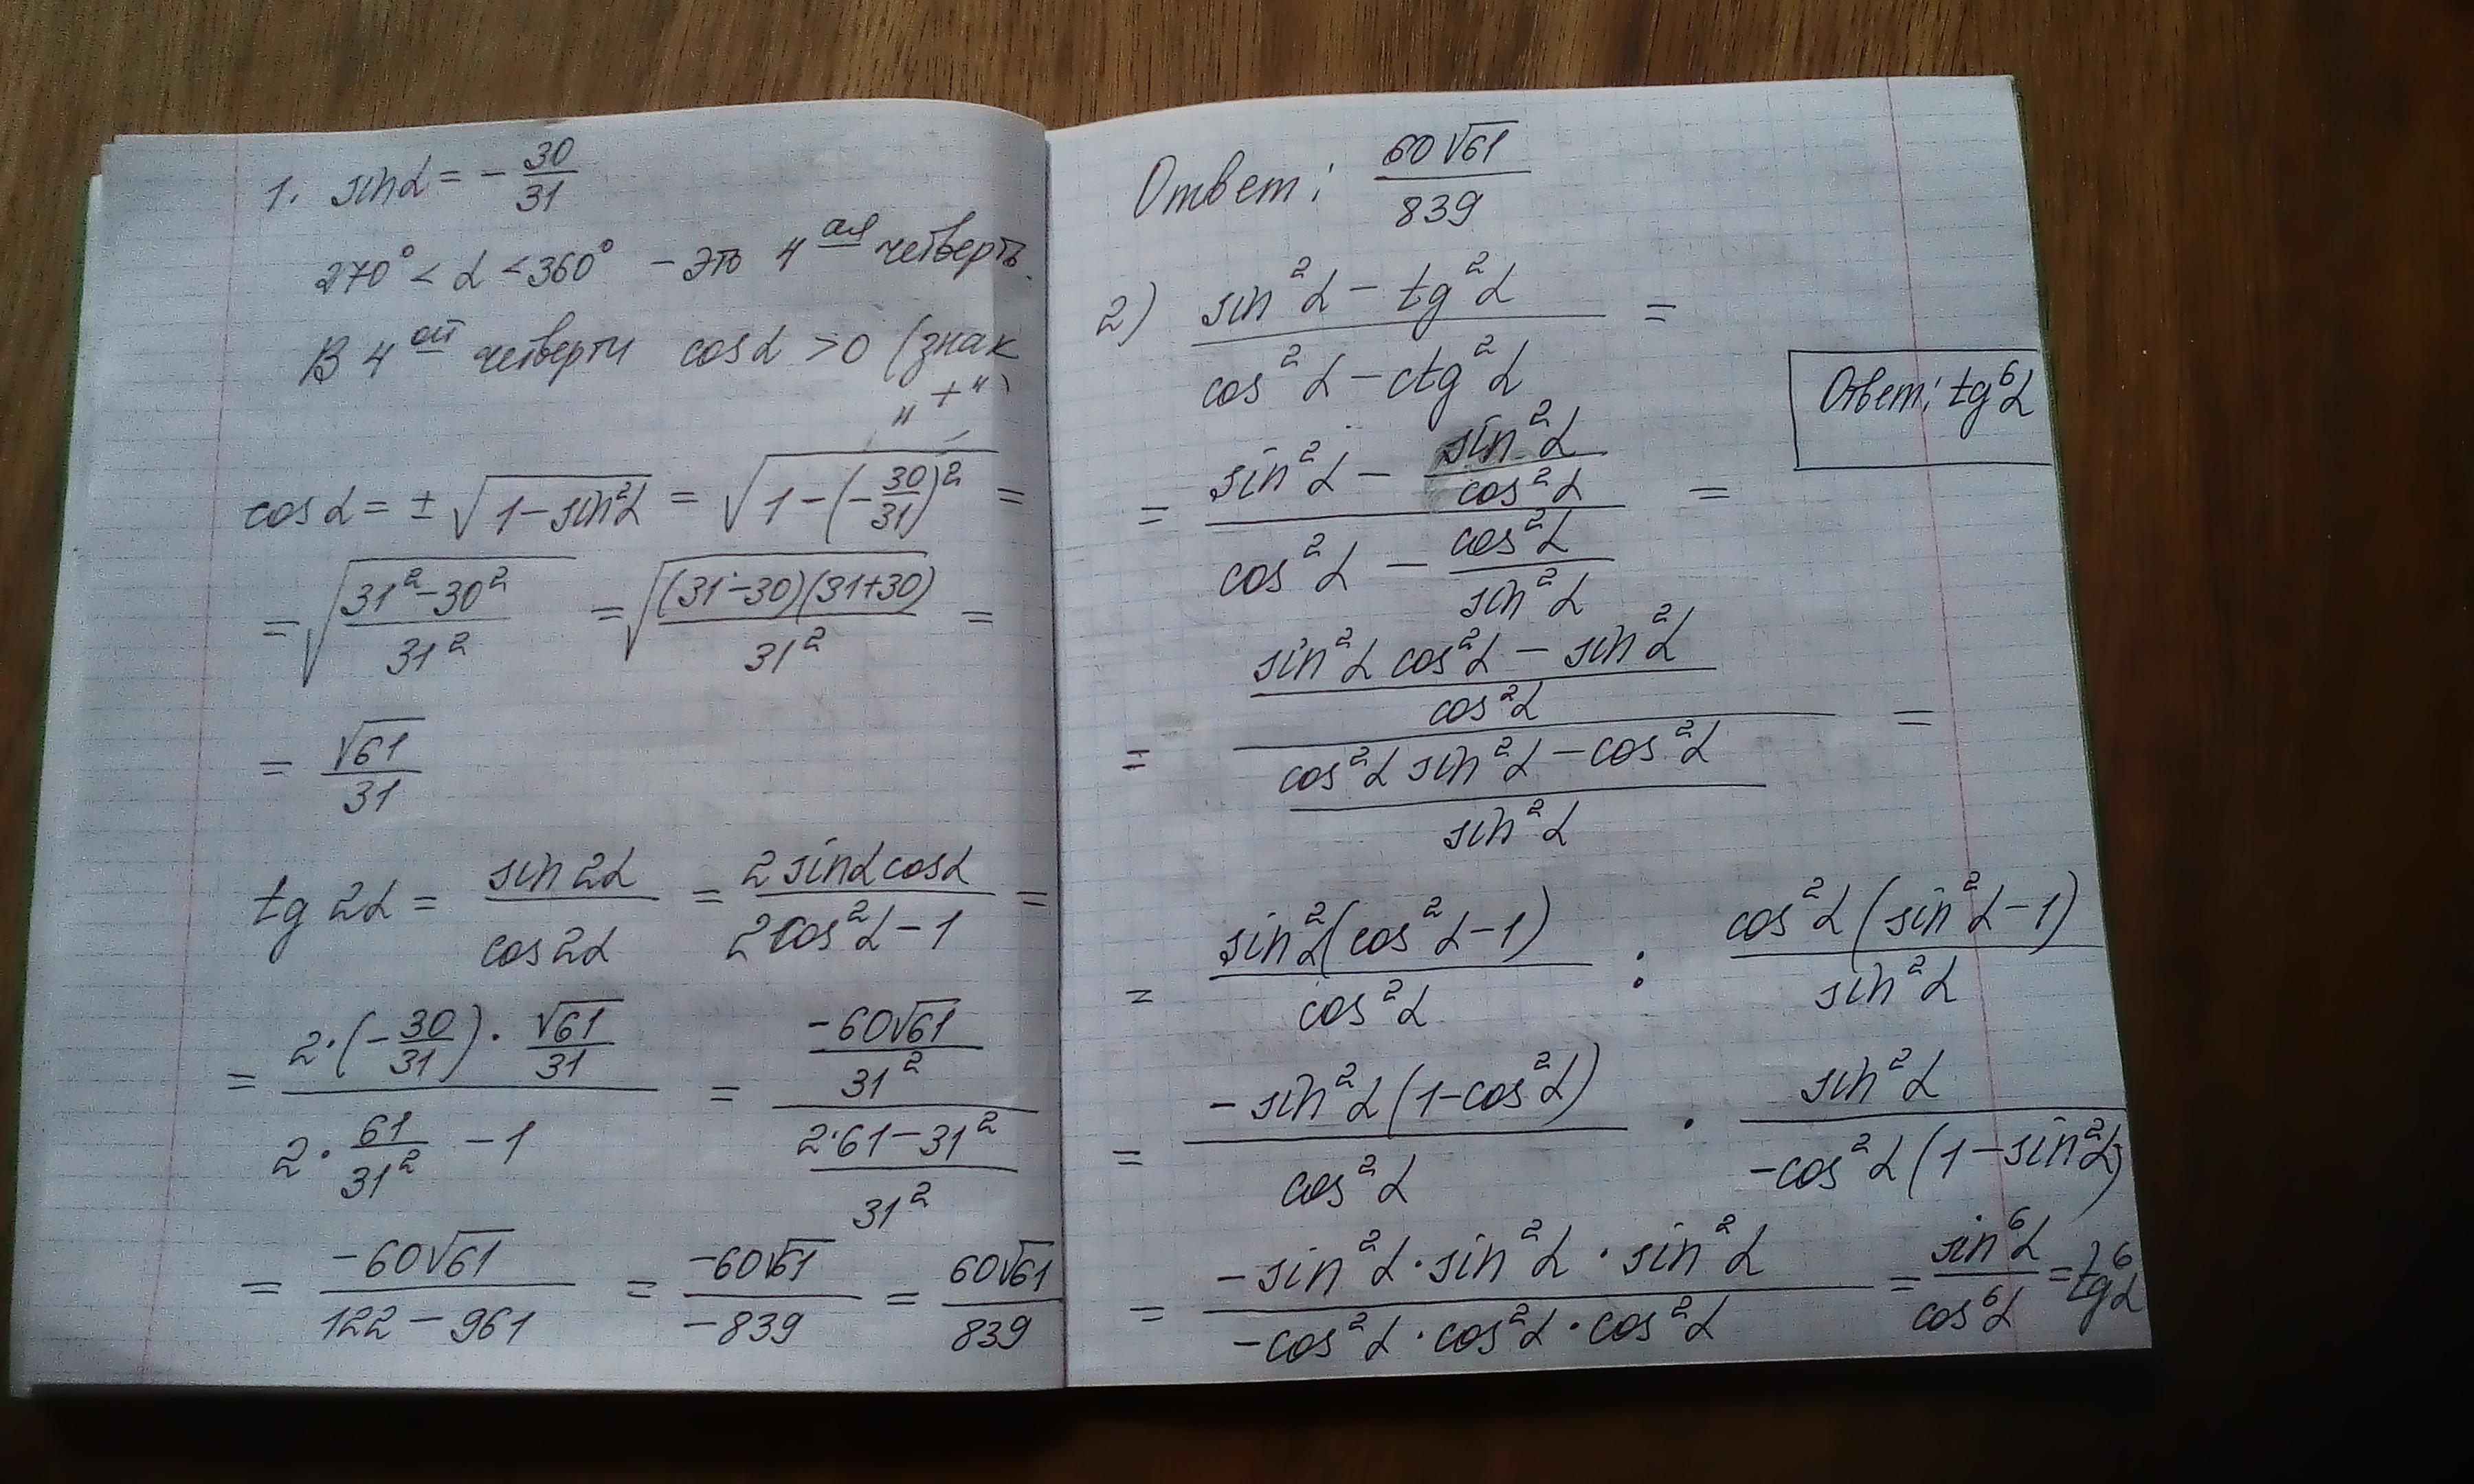 1. sinα = - 30/31
270° < α < 360° - это 4 ая четверть.
В 4 ой четверти cosα > 0 (знак
"+")
cosα = ± √(1 - sin²α) = √(1 - (-30/31)²) =
= √((31² - 30²)/31²) = √((31-30)(31+30)/31²) =
= √61/31
tg 2α = sin2α/cos2α = 2 sinα cosα/(2cos²α - 1) =
= (2·(-30/31)·√61/31)/(2·61/31² - 1) = (-60√61/31²)/((2·61 - 31²)/31²)
= -60√61/(122 - 961) = -60√61/-839 = 60√61/839
Ответ: 60√61/839
2) (sin²α - tg²α)/(cos²α - ctg²α) =
Ответ: tg⁶α
= (sin²α - sin²α/cos²α)/(cos²α - cos²α/sin²α) =
= ((sin²α cos²α - sin²α)/cos²α)/((cos²α sin²α - cos²α)/sin²α) =
= sin²α(cos²α - 1)/cos²α : cos²α(sin²α - 1)/sin²α
= -sin²α(1 - cos²α)/cos²α · sin²α/(-cos²α(1 - sin²α))
= (-sin²α · sin²α · sin²α)/(-cos²α · cos²α · cos²α) = sin⁶α/cos⁶α = tg⁶α